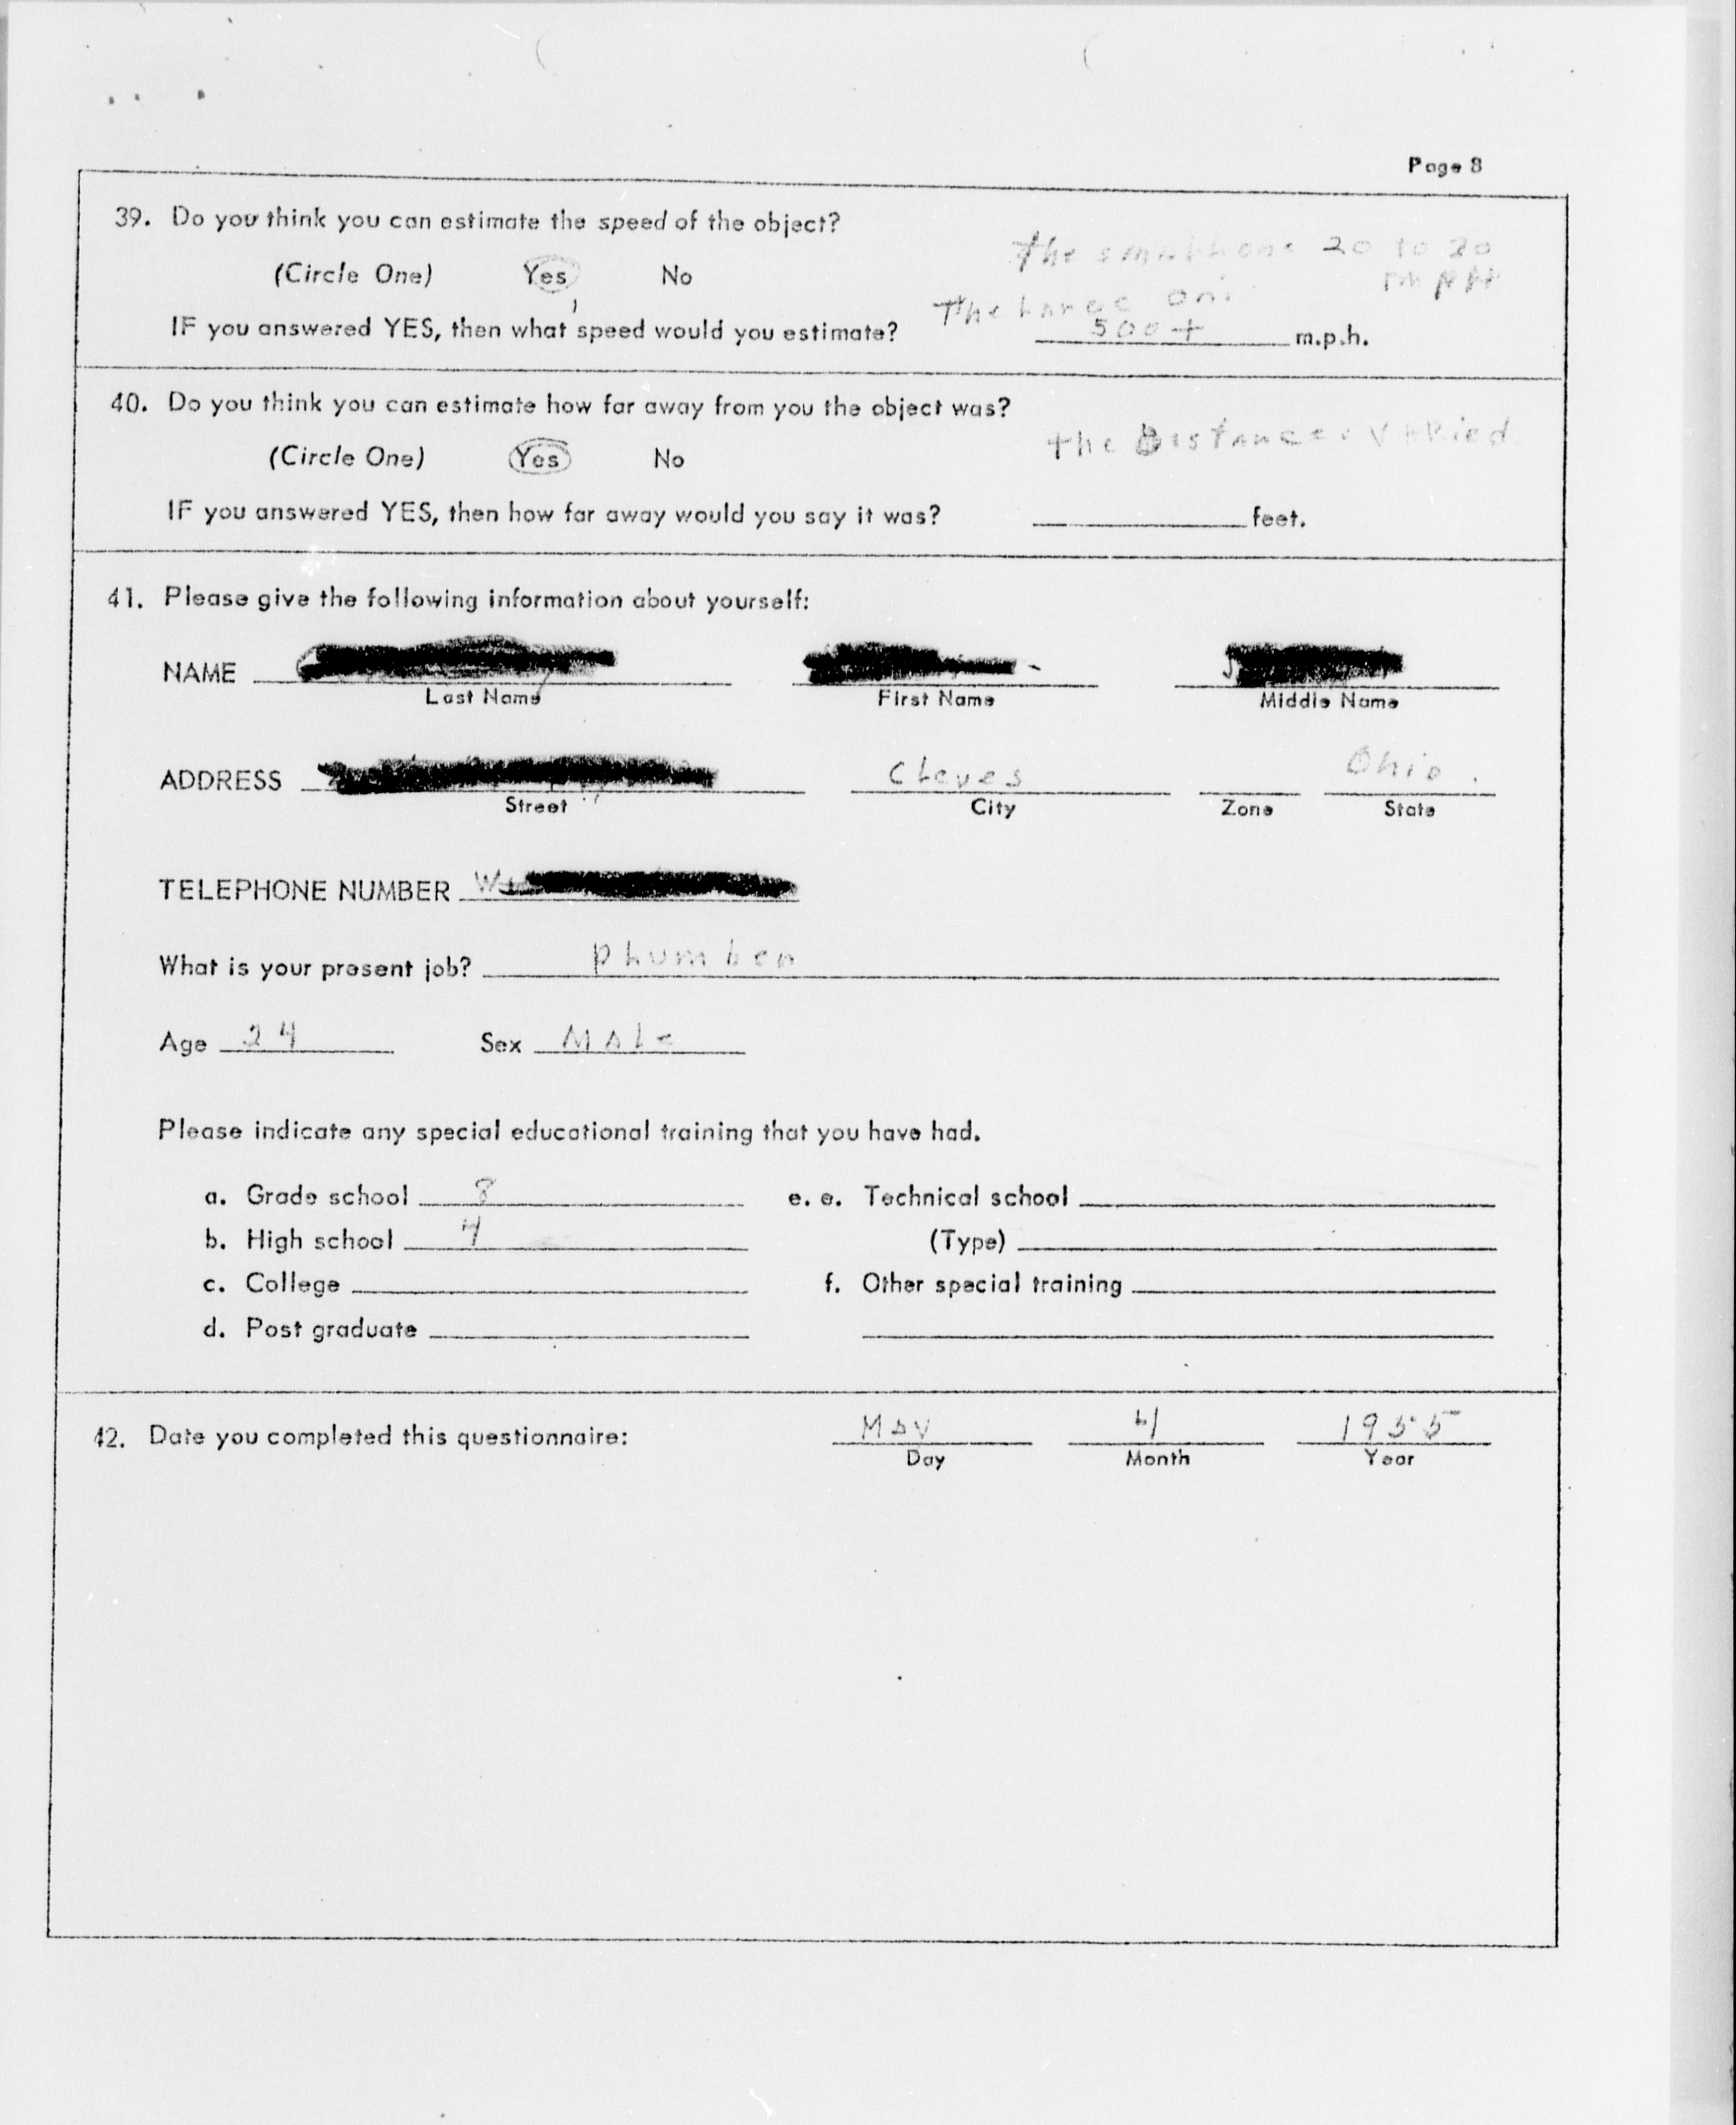 Page 8
39. Do you think you can estimate the speed of the object?
the small one 20 to 30
(Circle One) Yes No
mpH
The Large one
IF you answered YES, then what speed would you estimate? 500+ m.p.h.
40. Do you think you can estimate how far away from you the object was?
the Distance VARied
(Circle One) Yes No
IF you answered YES, then how far away would you say it was? feet.
41. Please give the following information about yourself:
NAME
Last Name First Name Middle Name
ADDRESS Cleves Ohio.
Street City Zone State
TELEPHONE NUMBER
What is your present job? PLumber
Age 24 Sex MALe
Please indicate any special educational training that you have had.
a. Grade school 8 e. e. Technical school
b. High school 4 (Type)
c. College f. Other special training
d. Post graduate
42. Date you completed this questionnaire: MAY 4 1955
Day Month Year